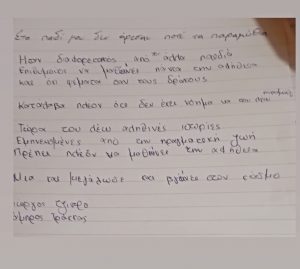 Στο παιδί μου δεν άρεσαν ποτέ τα παραμύθια
Ήταν διαφορετικός από τ' άλλα παιδιά
Επιθυμούσε να μαθαίνει πάντα την αλήθεια
και όχι ψέματα σαν τους δράκους
Κατάλαβα πλέον ότι δεν έχει νόημα να του πω
Τώρα του λέω αληθινές ιστορίες
Εμπνευσμένες από την πραγματική ζωή
Πρέπει πλέον να μαθαίνει την αλήθεια
Μια και μεγάλωσε και βγαίνει στον κόσμο